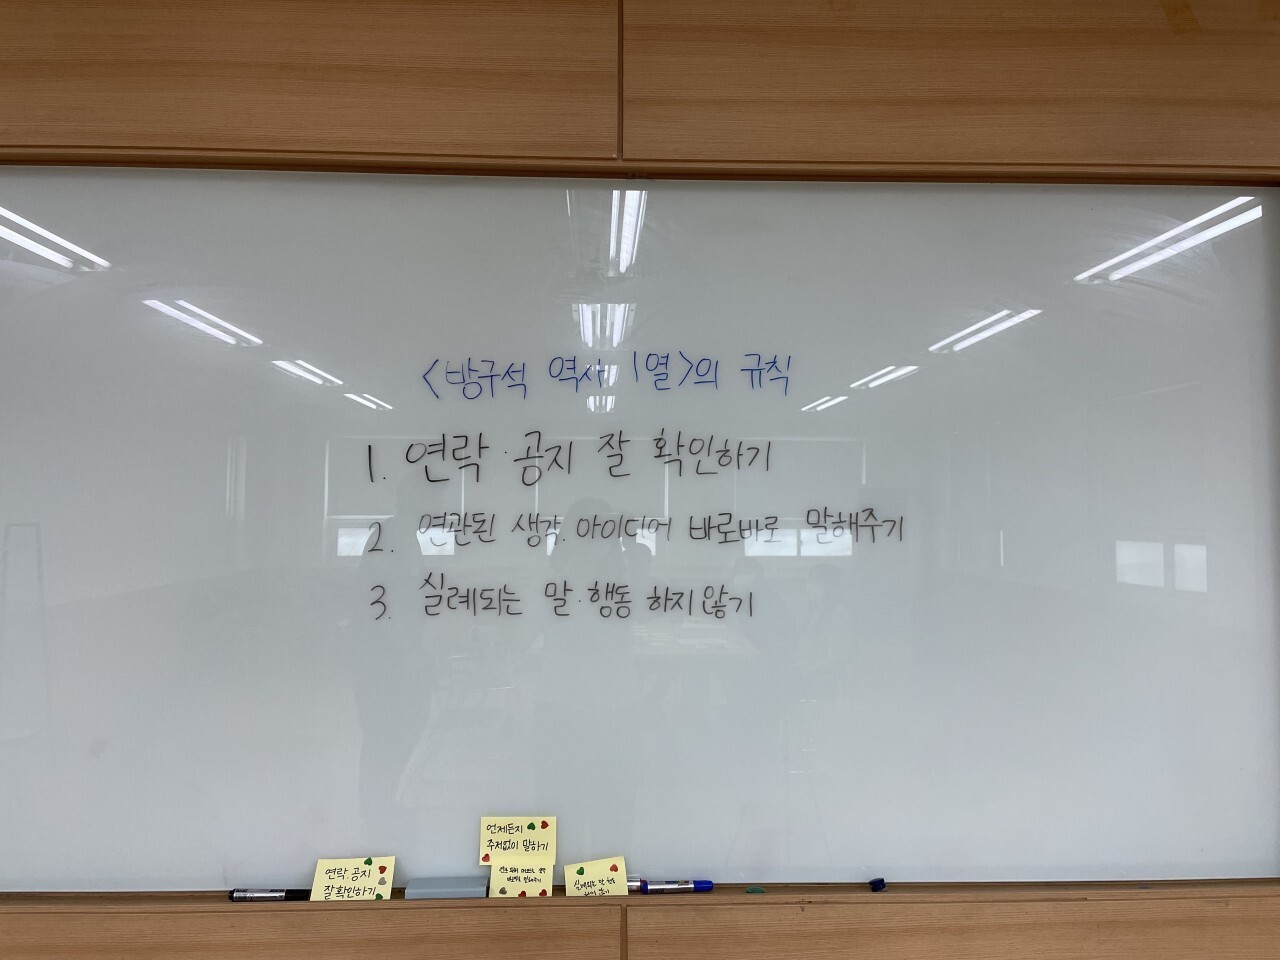 <방구석 역사 1열>의 규칙
1. 연락·공지 잘 확인하기
2. 연관된 생각·아이디어 바로바로 말해주기
3. 실례되는 말·행동 하지 않기
언제든지
주저없이 말하기
연락·공지
잘 확인하기
바로바로 말해주기
실례되는 말·행동
하지 않기